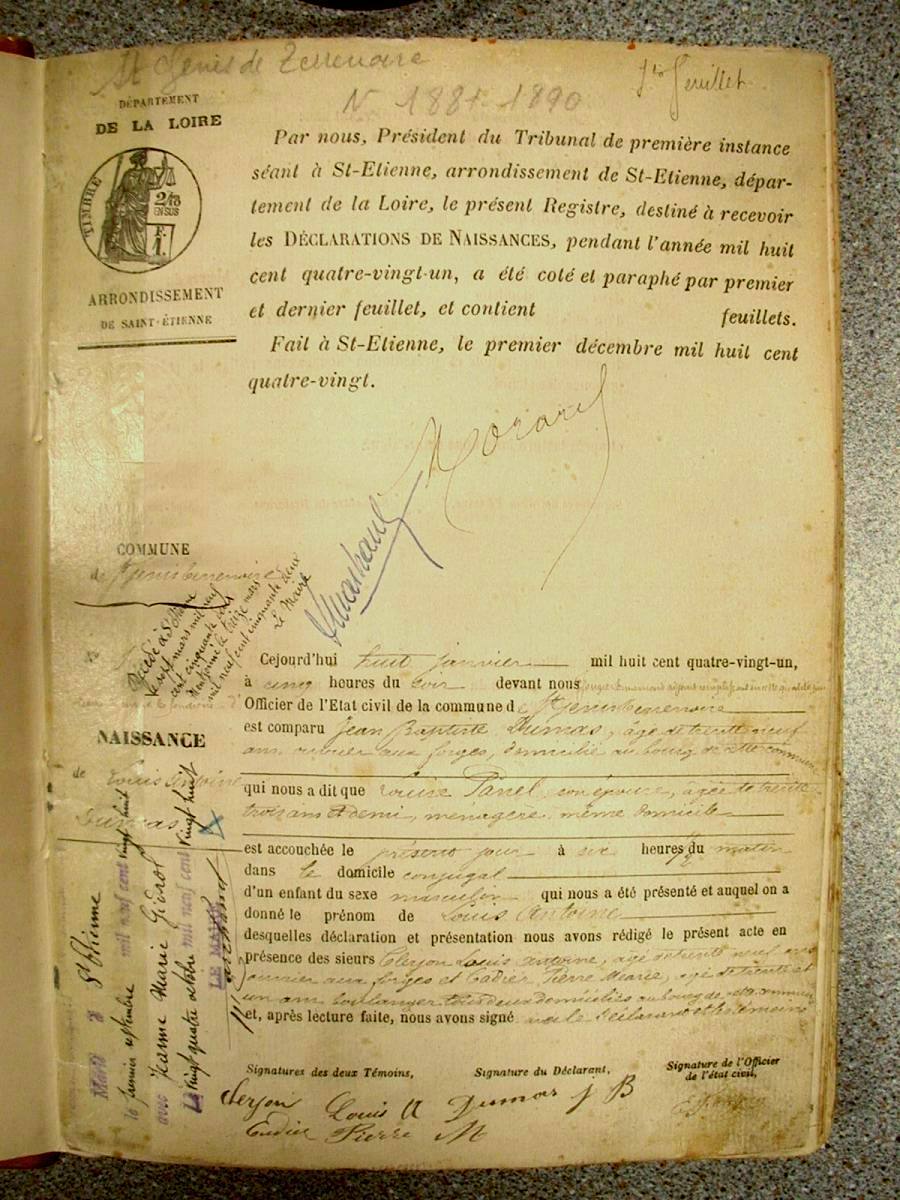 St Genis de Terrenoire
N 1881-1890
1er feuillet
DÉPARTEMENT
DE LA LOIRE
TIMBRE
2/10
EN SUS
ARRONDISSEMENT
DE SAINT-ÉTIENNE
Par nous, Président du Tribunal de première instance
séant à St-Etienne, arrondissement de St-Etienne, dépar-
tement de la Loire, le présent Registre, destiné à recevoir
les DÉCLARATIONS DE NAISSANCES, pendant l'année mil huit
cent quatre-vingt-un, a été coté et paraphé par premier
et dernier feuillet, et contient feuillets.
Fait à St-Etienne, le premier décembre mil huit cent
quatre-vingt.
COMMUNE
de St Genis Terrenoire
Décédé à St Etienne
le sept mars mil neuf
cent cinquante deux
mil neuf cent cinquante deux
Le Maire
NAISSANCE
de Louis Antoine
Dumas
Marié à St Etienne
le premier septembre mil neuf cent vingt huit
avec Jeanne Marie
Le vingt quatre octobre mil neuf cent vingt huit
LE MAIRE
Cejourd'hui huit janvier mil huit cent quatre-vingt-un,
à cinq heures du soir devant nous
Officier de l'Etat civil de la commune de St Genis Terrenoire
est comparu Jean Baptiste Dumas, âgé de trente neuf
ans, ouvrier aux forges, domicilié au bourg de cette commune
qui nous a dit que Louise Panel, son épouse, âgée de trente
trois ans et demi, ménagère, même domicile
est accouchée le présent jour à six heures du matin
dans le domicile conjugal
d'un enfant du sexe masculin qui nous a été présenté et auquel on a
donné le prénom de Louis Antoine
desquelles déclaration et présentation nous avons rédigé le présent acte en
présence des sieurs Clerjon Louis Antoine, âgé de trente neuf ans
ouvrier aux forges et Cadier Pierre Marie, âgé de trente et
un ans, boulanger tous deux domiciliés au bourg de cette commune
et, après lecture faite, nous avons signé avec le déclarant et les témoins
Signatures des deux Témoins, Signature du Déclarant, Signature de l'Officier
de l'état civil,
Clerjon Louis A Dumas J B
Cadier Pierre M